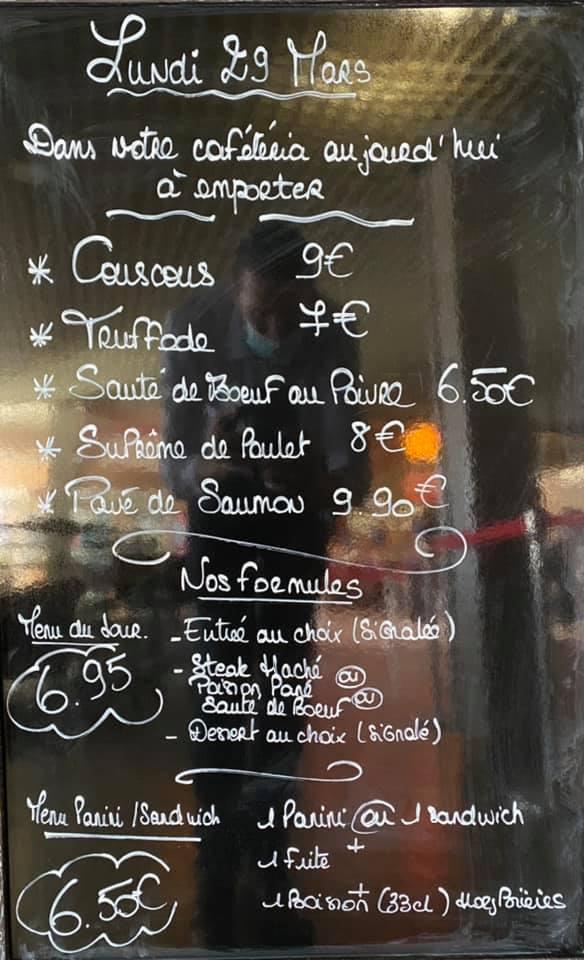 Lundi 29 Mars
Dans votre cafétéria aujourd'hui
à emporter
* Couscous 9€
* Truffade 7€
* Sauté de Boeuf au Poivre 6.50€
* Suprême de Poulet 8€
* Pavé de Saumon 9.90€
Nos formules
Menu du Jour. - Entrée au choix (Signalée)
6.95
- Steak Haché ou
Poisson Pané
Sauté de Boeuf ou
- Dessert au choix (Signalé)
Menu Panini / Sandwich
6.55€
1 Panini ou 1 Sandwich
+
1 frite
+
1 Boisson (33cl) Hors Bières